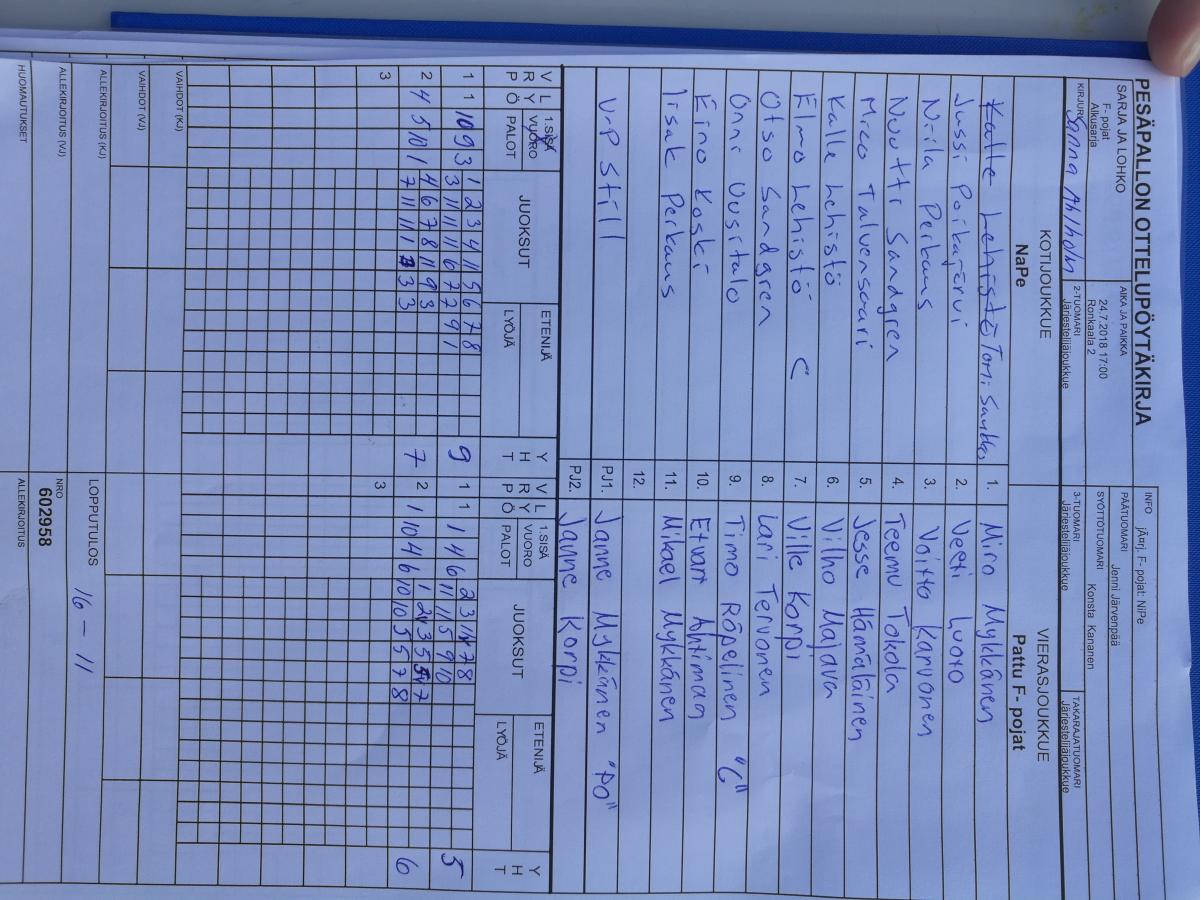 PESÄPALLON OTTELUPÖYTÄKIRJA
INFO jÄrj. F- pojat: NiPe
SARJA JA LOHKO
F- pojat
Alkusarja
AIKA JA PAIKKA
24.7.2018 17:00
Ronkaala 2
PÄÄTUOMARI Jenni Järvenpää
SYÖTTÖTUOMARI Konsta Kananen
KIRJURI Sanna Ahlholm
2-TUOMARI
Järjestelijäjoukkue
3-TUOMARI
Järjestelijäjoukkue
TAKARAJATUOMARI
Järjestelijäjoukkue
KOTIJOUKKUE
NaPe
VIERASJOUKKUE
Pattu F- pojat
Kalle Lehistö Tomi 1. Miro Mykkänen
Jussi Poikajärvi 2. Veeti Luoto
Niila Perkaus 3. Voitto Karvonen
Nuutti Sandgren 4. Teemu Takala
Mico Talvensaari 5. Jesse Hännäläinen
Kalle Lehistö 6. Vilho Majava
Elmo Lehistö C 7. Ville Korpi
Otso Sandgren 8. Lari Tervonen
Onni Uusitalo 9. Timo Röpelinen "C"
Eino Koski 10. Etvart Ahtimaa
Iisak Perkaus 11. Mikael Mykkänen
12.
V-P Still PJ1. Janne Mykkänen "PO"
PJ2. Janne Korpi
V L
R Y
P Ö
1.SISÄ
VUORO
PALOT
JUOKSUT
ETENIJÄ
LYÖJÄ
Y
H
T
V L
R Y
P Ö
1.SISÄ
VUORO
PALOT
JUOKSUT
ETENIJÄ
LYÖJÄ
Y
H
T
1 1 10 9 3 1 2 3 4 11 5 6 7 8 9
3 11 11 11 6 7 7 9 1
1 1 1 4 6 2 3 11 7 8 5
11 11 5 9 10
2 4 5 10 1 4 6 7 8 11 9 3 7
7 11 11 1 3 3 3
2 1 10 4 6 1 2 3 5 5 7 6
10 10 5 5 7 8
3
3
VAIHDOT (KJ)
VAIHDOT (VJ)
ALLEKIRJOITUS (KJ)
LOPPUTULOS 16 - 11
ALLEKIRJOITUS (VJ)
NRO
602958
HUOMAUTUKSET
ALLEKIRJOITUS